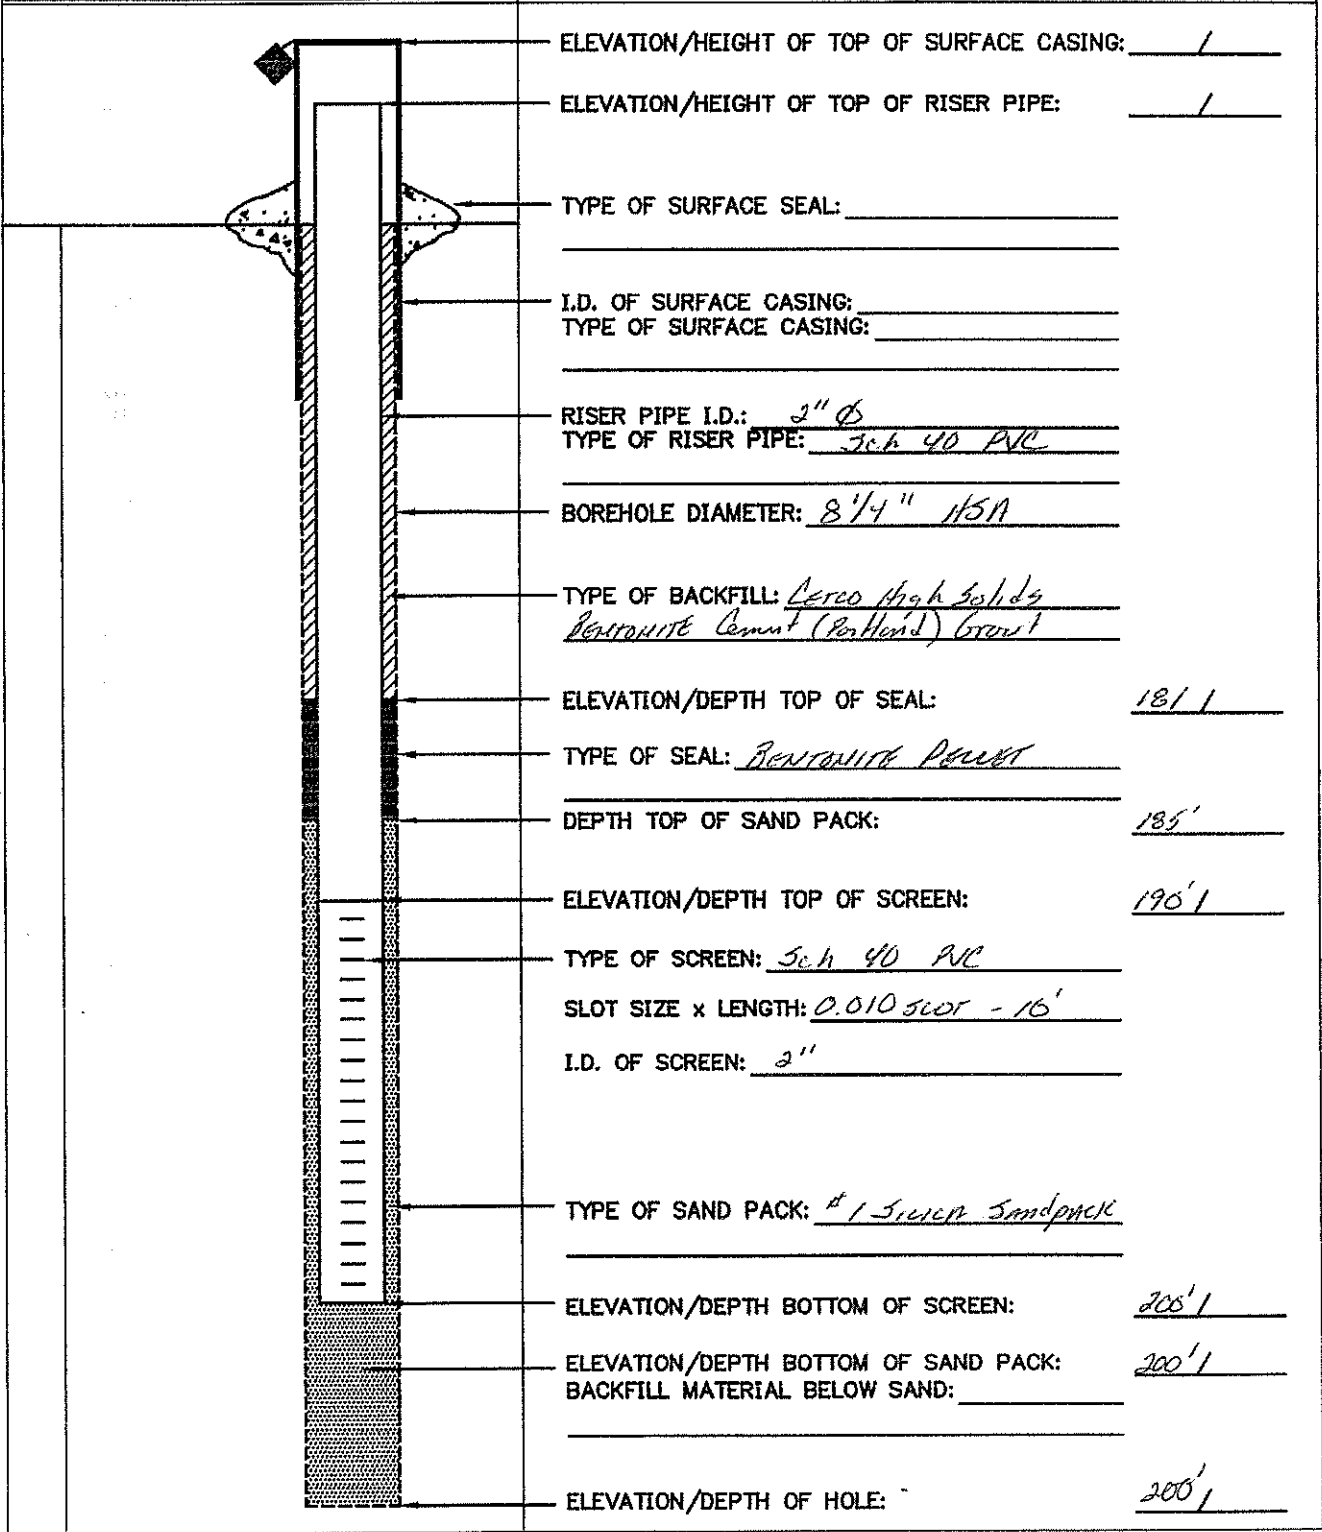 ELEVATION/HEIGHT OF TOP OF SURFACE CASING: /
ELEVATION/HEIGHT OF TOP OF RISER PIPE: /
TYPE OF SURFACE SEAL:
I.D. OF SURFACE CASING:
TYPE OF SURFACE CASING:
RISER PIPE I.D.: 2" Ø
TYPE OF RISER PIPE: Sch 40 PVC
BOREHOLE DIAMETER: 8 1/4" HSA
TYPE OF BACKFILL: High Solids
BENTONITE Cement (Portland) Grout
ELEVATION/DEPTH TOP OF SEAL: 181 /
TYPE OF SEAL: BENTONITE PELLET
DEPTH TOP OF SAND PACK: 185'
ELEVATION/DEPTH TOP OF SCREEN: 190' /
TYPE OF SCREEN: Sch 40 PVC
SLOT SIZE x LENGTH: 0.010 SLOT - 10'
I.D. OF SCREEN: 2"
TYPE OF SAND PACK: #1 SILICA Sandpack
ELEVATION/DEPTH BOTTOM OF SCREEN: 200' /
ELEVATION/DEPTH BOTTOM OF SAND PACK: 200' /
BACKFILL MATERIAL BELOW SAND:
ELEVATION/DEPTH OF HOLE: 200' /